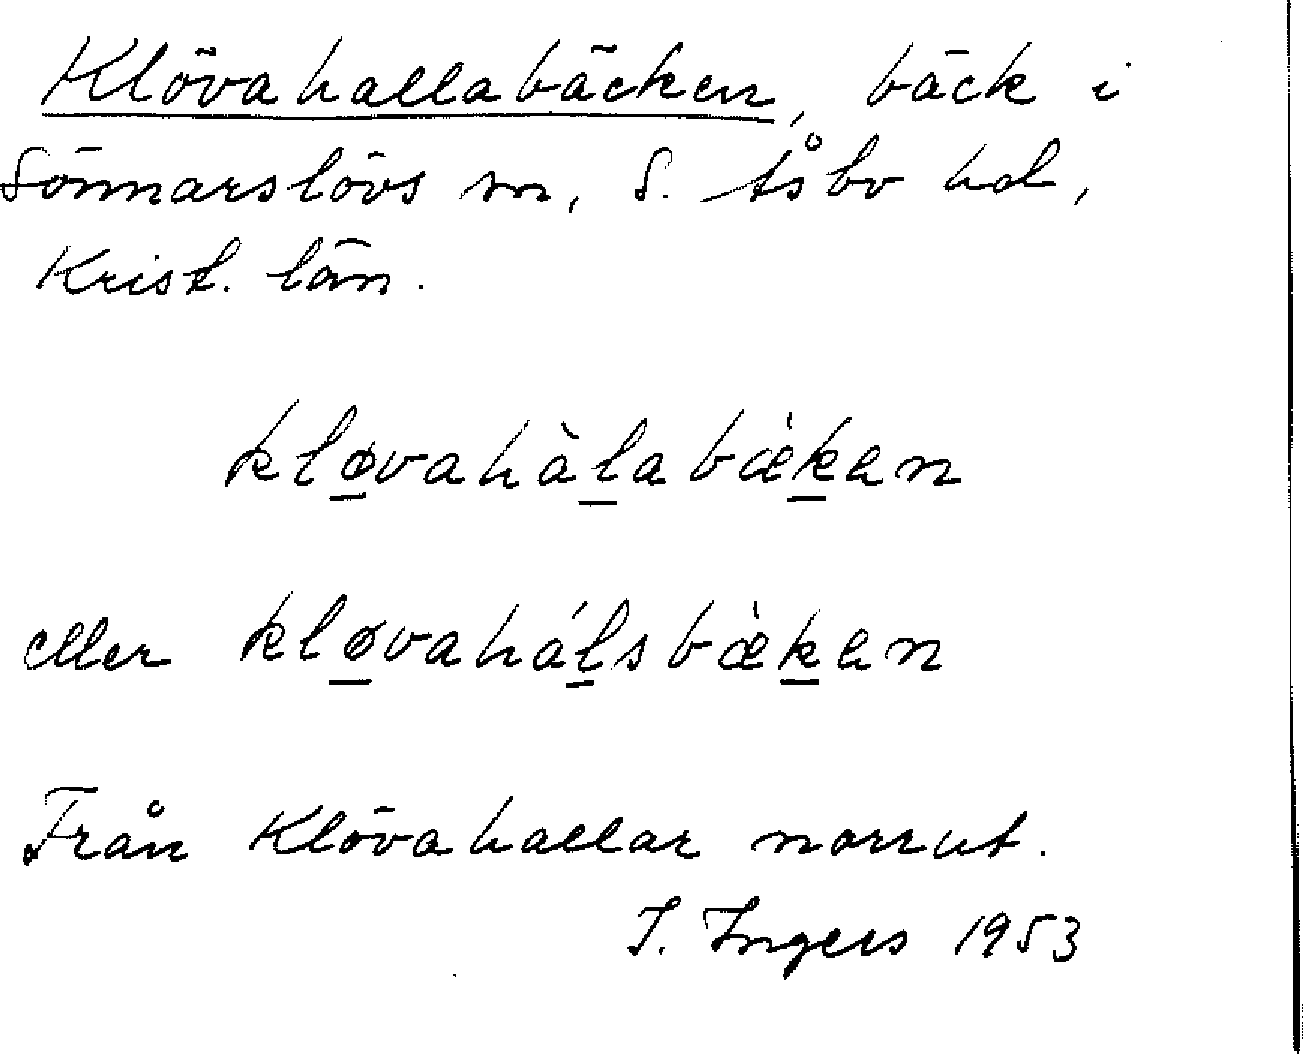 Klövahallabäcken, bäck i
Sönnarslövs sn, S. Åsbo hd,
Krist. län.
klø̱vahàḻabæ̀ḵen
eller klø̱vaháḻsbæ̀ḵen
Från Klövahallar norrut.
I. Ingers 1953